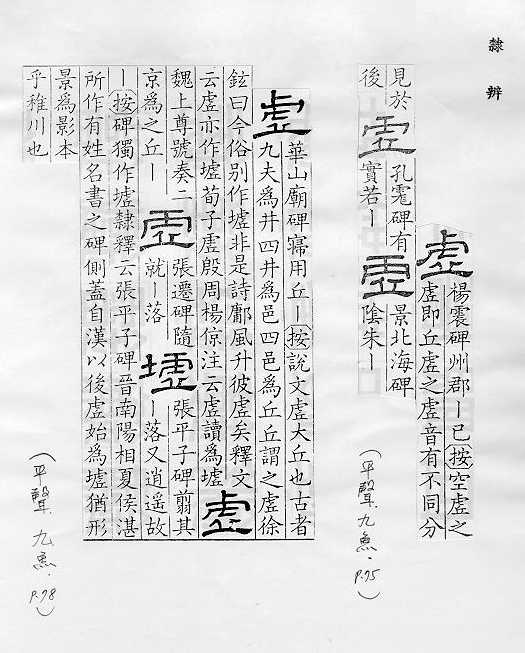 隸辨
虛 楊震碑州郡ー已 按空虛之
虛即丘虛之虛音有不同分
見於 虛 孔宙碑有 虛 景北海碑
後 實若ー 陰朱ー
(平聲.九魚. P.75)
虛 華山廟碑寤用丘ー 按說文虛大丘也古者
九夫爲井四井爲邑四邑爲丘丘謂之虛徐
鉉曰今俗別作墟非是詩鄘風升彼虛矣釋文
云虛亦作墟荀子虛殷周楊倞注云虛讀爲墟 虛
魏上尊號奏二 虛 張遷碑隨 墟 張平子碑翦其
京爲之丘ー 就ー落 ー落又逍遥故
ー 按碑獨作墟隸釋云張平子碑晉南陽相夏侯湛
所作有姓名書之碑側蓋自漢以後虛始爲墟猶形
景爲影本
乎稚川也
(平聲.九魚. P.78)